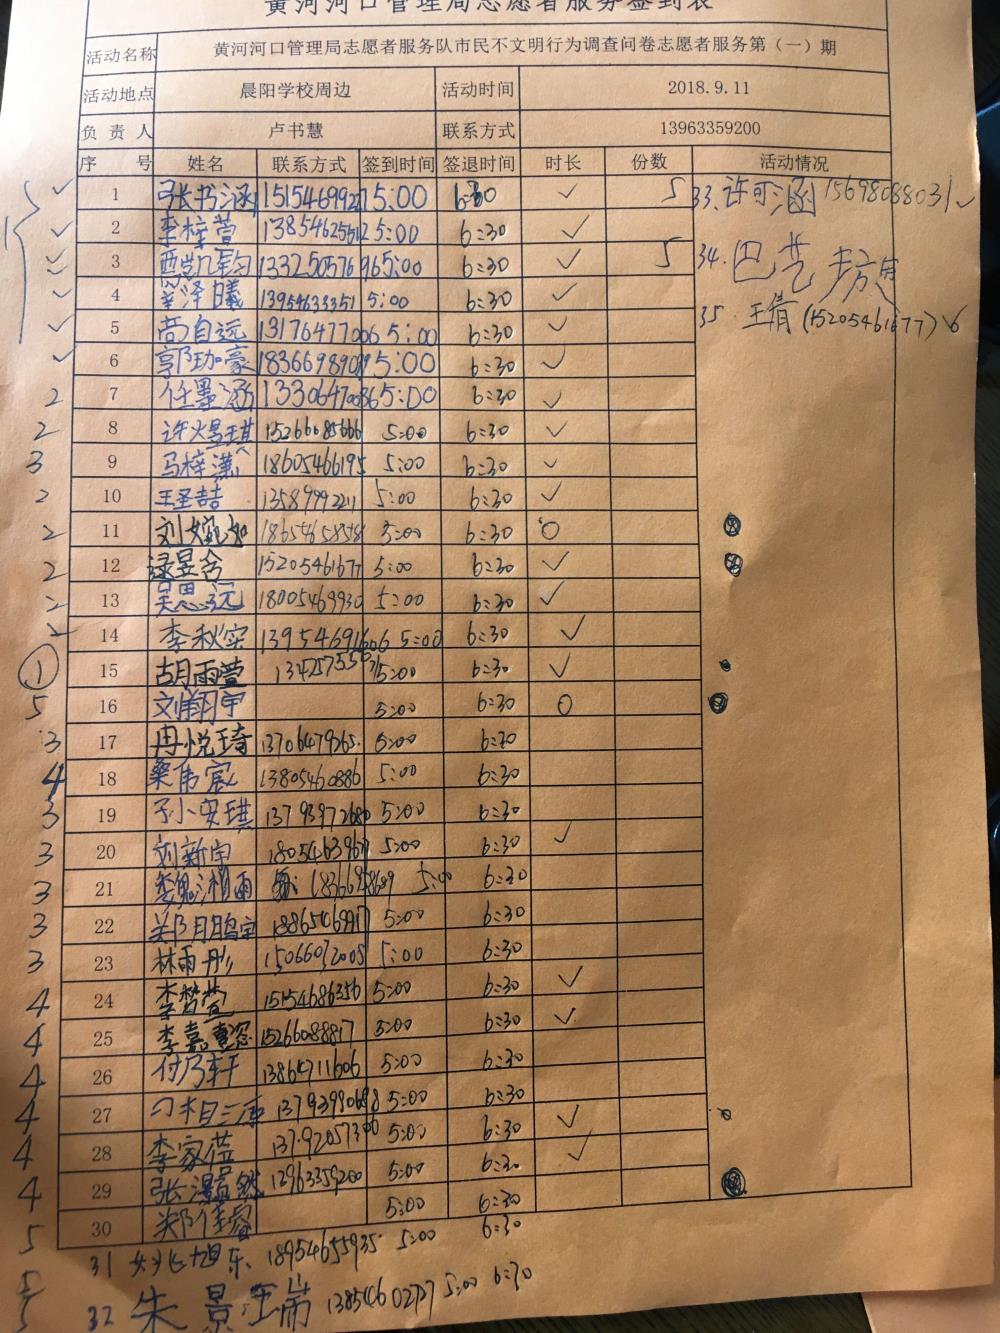 黄河河口管理局志愿者服务签到表
活动名称 黄河河口管理局志愿者服务队市民不文明行为调查问卷志愿者服务第（一）期
活动地点 晨阳学校周边 活动时间 2018.9.11
负责人 卢书慧 联系方式 13963359200
序号 姓名 联系方式 签到时间 签退时间 时长 份数 活动情况
1 张书涵 5:00 6:30 ✓ 5 33.许可涵 15698088031 ✓
2 李梓萱 5:00 6:30 ✓
3 5:00 6:30 ✓ 5 34.巴艺
4 姜泽曦 13954633351 5:00 6:30 ✓
5 尚自远 13176477006 5:00 6:30 ✓ 35. 王倩 (15205461677)
6 5:00 6:30 ✓
2 7 任墨涵 5:00 6:30 ✓
2 8 许煜琪 15266085666 5:00 6:30 ✓
3 9 马梓潇 18605466195 5:00 6:30 ✓
2 10 王圣喆 5:00 6:30 ✓
2 11 18654658584 5:00 6:30 O
2 12 15205461677 5:00 6:30 ✓
2 13 吴思远 18005469930 5:00 6:30 ✓
2 14 李秋实 5:00 6:30 ✓
1 15 胡雨萱 5:00 6:30 ✓
5 16 刘翔宇 5:00 6:30 O
3 17 冉悦琦 13706479265 5:00 6:30
4 18 桑伟宸 13805460886 5:00 6:30
3 19 5:00 6:30
3 20 刘新宇 5:00 6:30 ✓
3 21 魏湘雨 5:00 6:30
3 22 5:00 6:30
3 23 林雨彤 15066072005 5:00 6:30
4 24 李智萱 15154686356 5:00 6:30 ✓
4 25 李嘉 15266088817 5:00 6:30 ✓
4 26 付乃轩 13864711606 5:00 6:30
4 27 5:00 6:30 ✓
4 28 李家蓓 5:00 6:30 ✓
4 29 5:00 6:30
5 30 郑佳睿 5:00 6:30
5 31 姚旭东 18954655935 5:00 6:30
5 32 朱景 13854602727 5:00 6:30